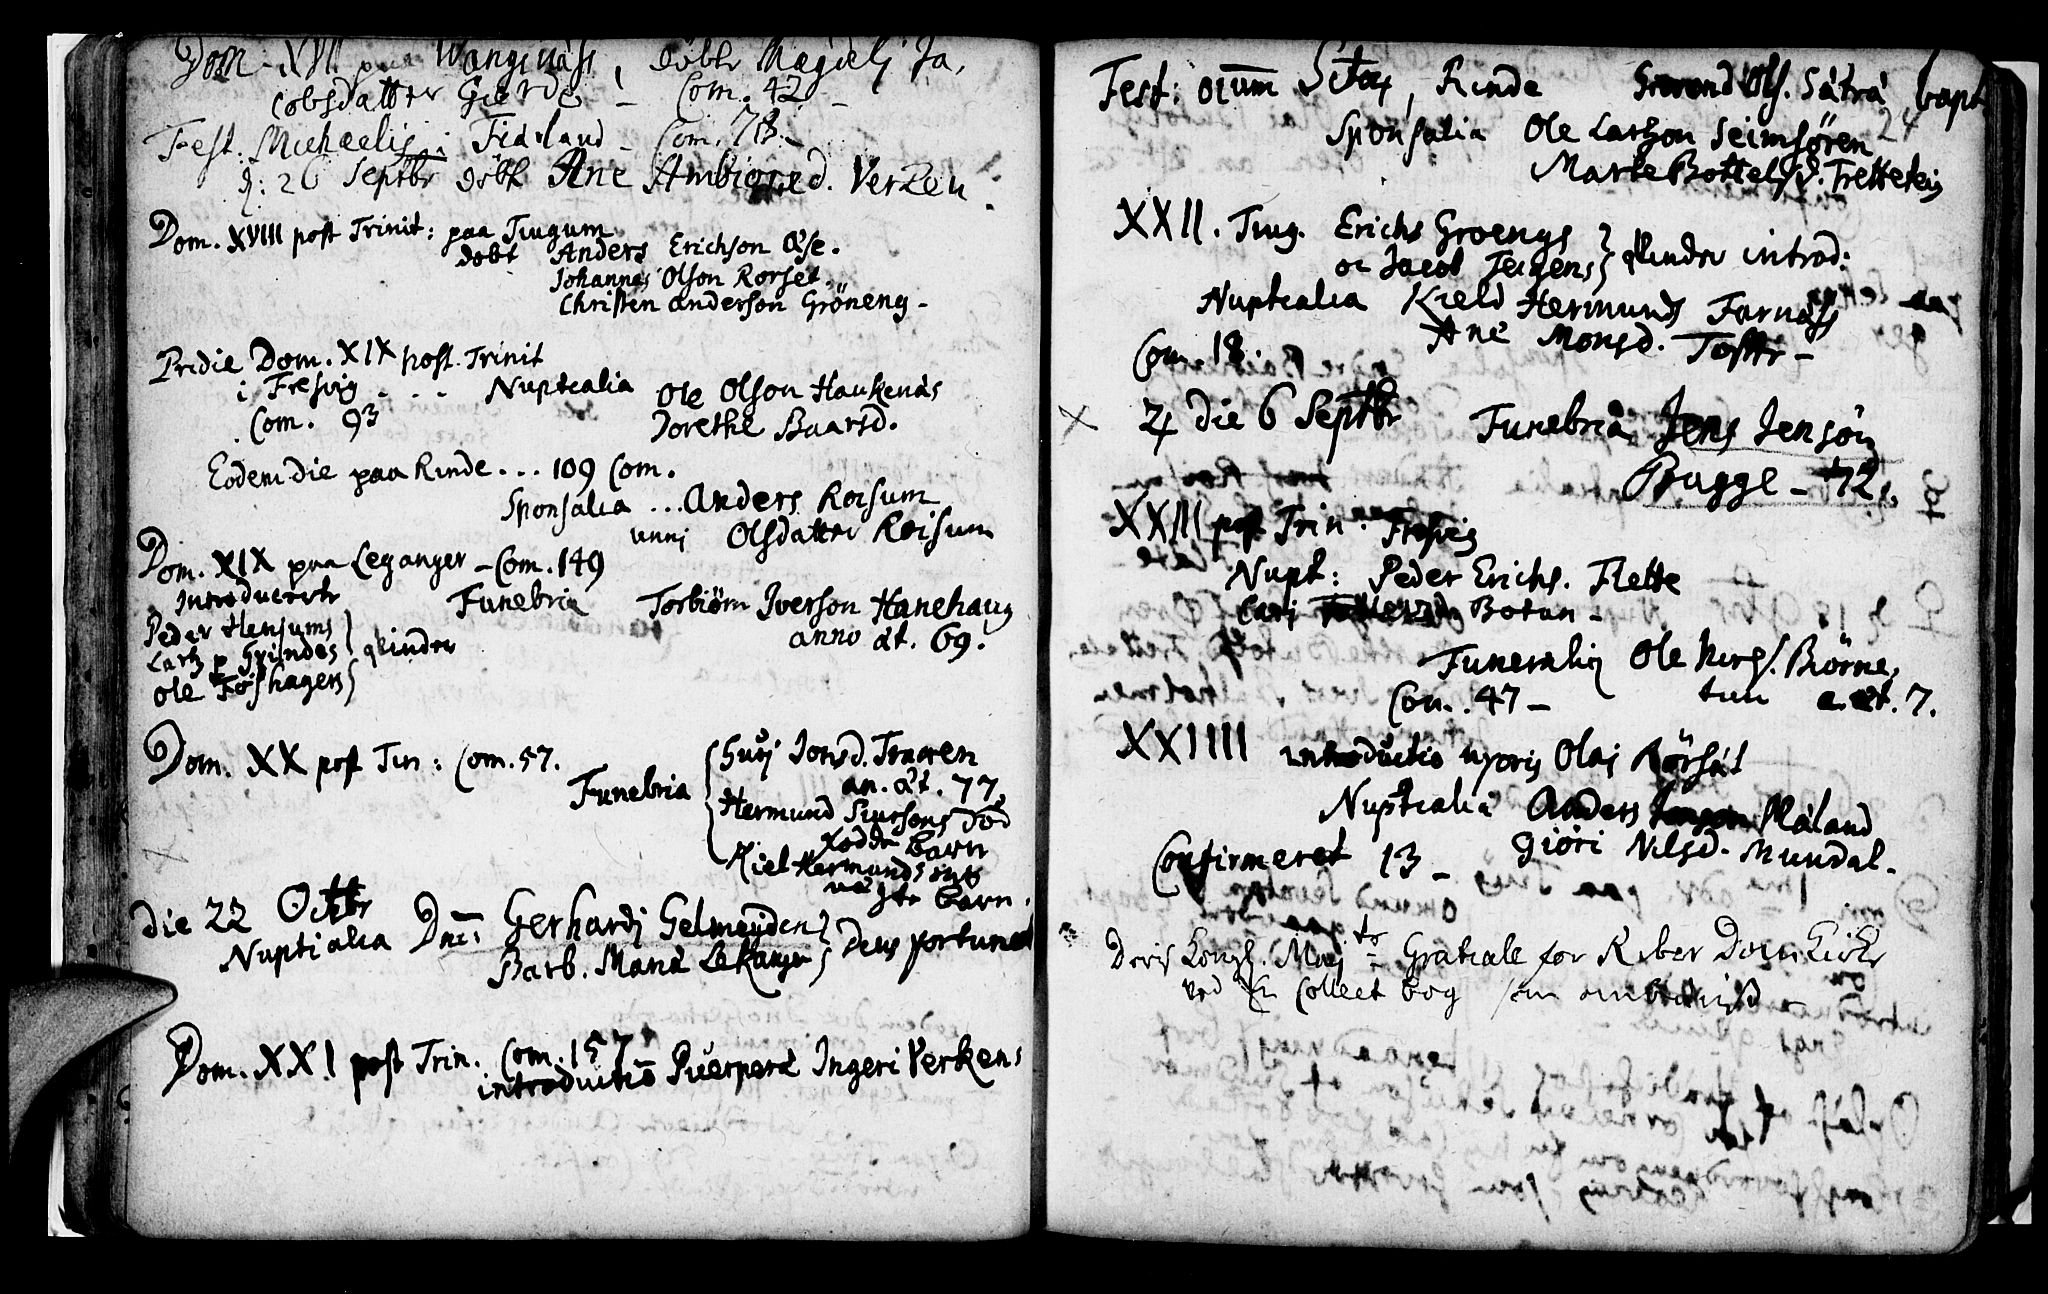 Dom. XVII. paa Wangsnäss, döbt Magdelj Ja,
cobsdatter Gierde – Com. 42 –
Fest. Michaelis i Fiærland – Com. 78 –
d: 26 Septbr döbt Ane Ambiorsd. Verken.
Dom. XVIII post Trinit: paa Tiugum
döbt Anders Erichson Ase.
Johannes Olson Rorset.
Christen anderson Gröneng –
Pridie Dom. XIX post. Trinit
i Fresvig . . . Nuptialia Ole Olson Haukenäs
Com. 93 Dorethe Baarsd.
Eodem die paa Rinde ... 109 Com.
Sponsalia ... Anders Roisum
unni Olsdatter Roisum
Dom. XIX paa Leganger – Com. 149
Introducerte Funebria Torbiörn Iverson Hanehaug
Peder Hensums anno æt. 69.
Lartz p Grindes qvinder
Ole Foshagens
Dom. XX post Trin: Com. 57.
Funebria Guij Jonsd. Traaen
an. æt. 77,
Hermund Siursons död
födde barn
Kiel Hermunds
barn.
die 22 Octbr
Nuptialia Dni: Gerhardj Gelmeyden
Barb. Maria Lekanger Deus fortunet
Dom. XXI post Trin. Com. 157 –
introductio Puerperæ Ingeri Verkens
Fest: oium Sctor, Rinde Olf. Sätra bapt
24
Sponsalia Ole Lartzon Seimsören
Marte Bottelsd. Fretteteig
XXII. Tiug. Erichs Groengs
oc Jacob Teigens qvinder introd:
Nuptialia Kield Hermunds Farnäss
Com. 18. Ane Monsd. Toftte –
4 die 6 Septbr Funebria Jens Jensön
Bugge – 72.
XXIII post Trin. Fresvig
Nupt: Peder Erichs. Flette
Cari Botun –
Funeralia Ole Nirs. Biörne,
Com. 47 – tun æt. 7.
XXIIII introductio uxoris Olaj Rörsät
Nuptialia Anders Måland
Confirmeret 13 – Giöri Nilsd. Mundal.
Deris Kongl. Maj ts Gratiale for Riber Dom Kirke
ved En Collect bog som ombäris